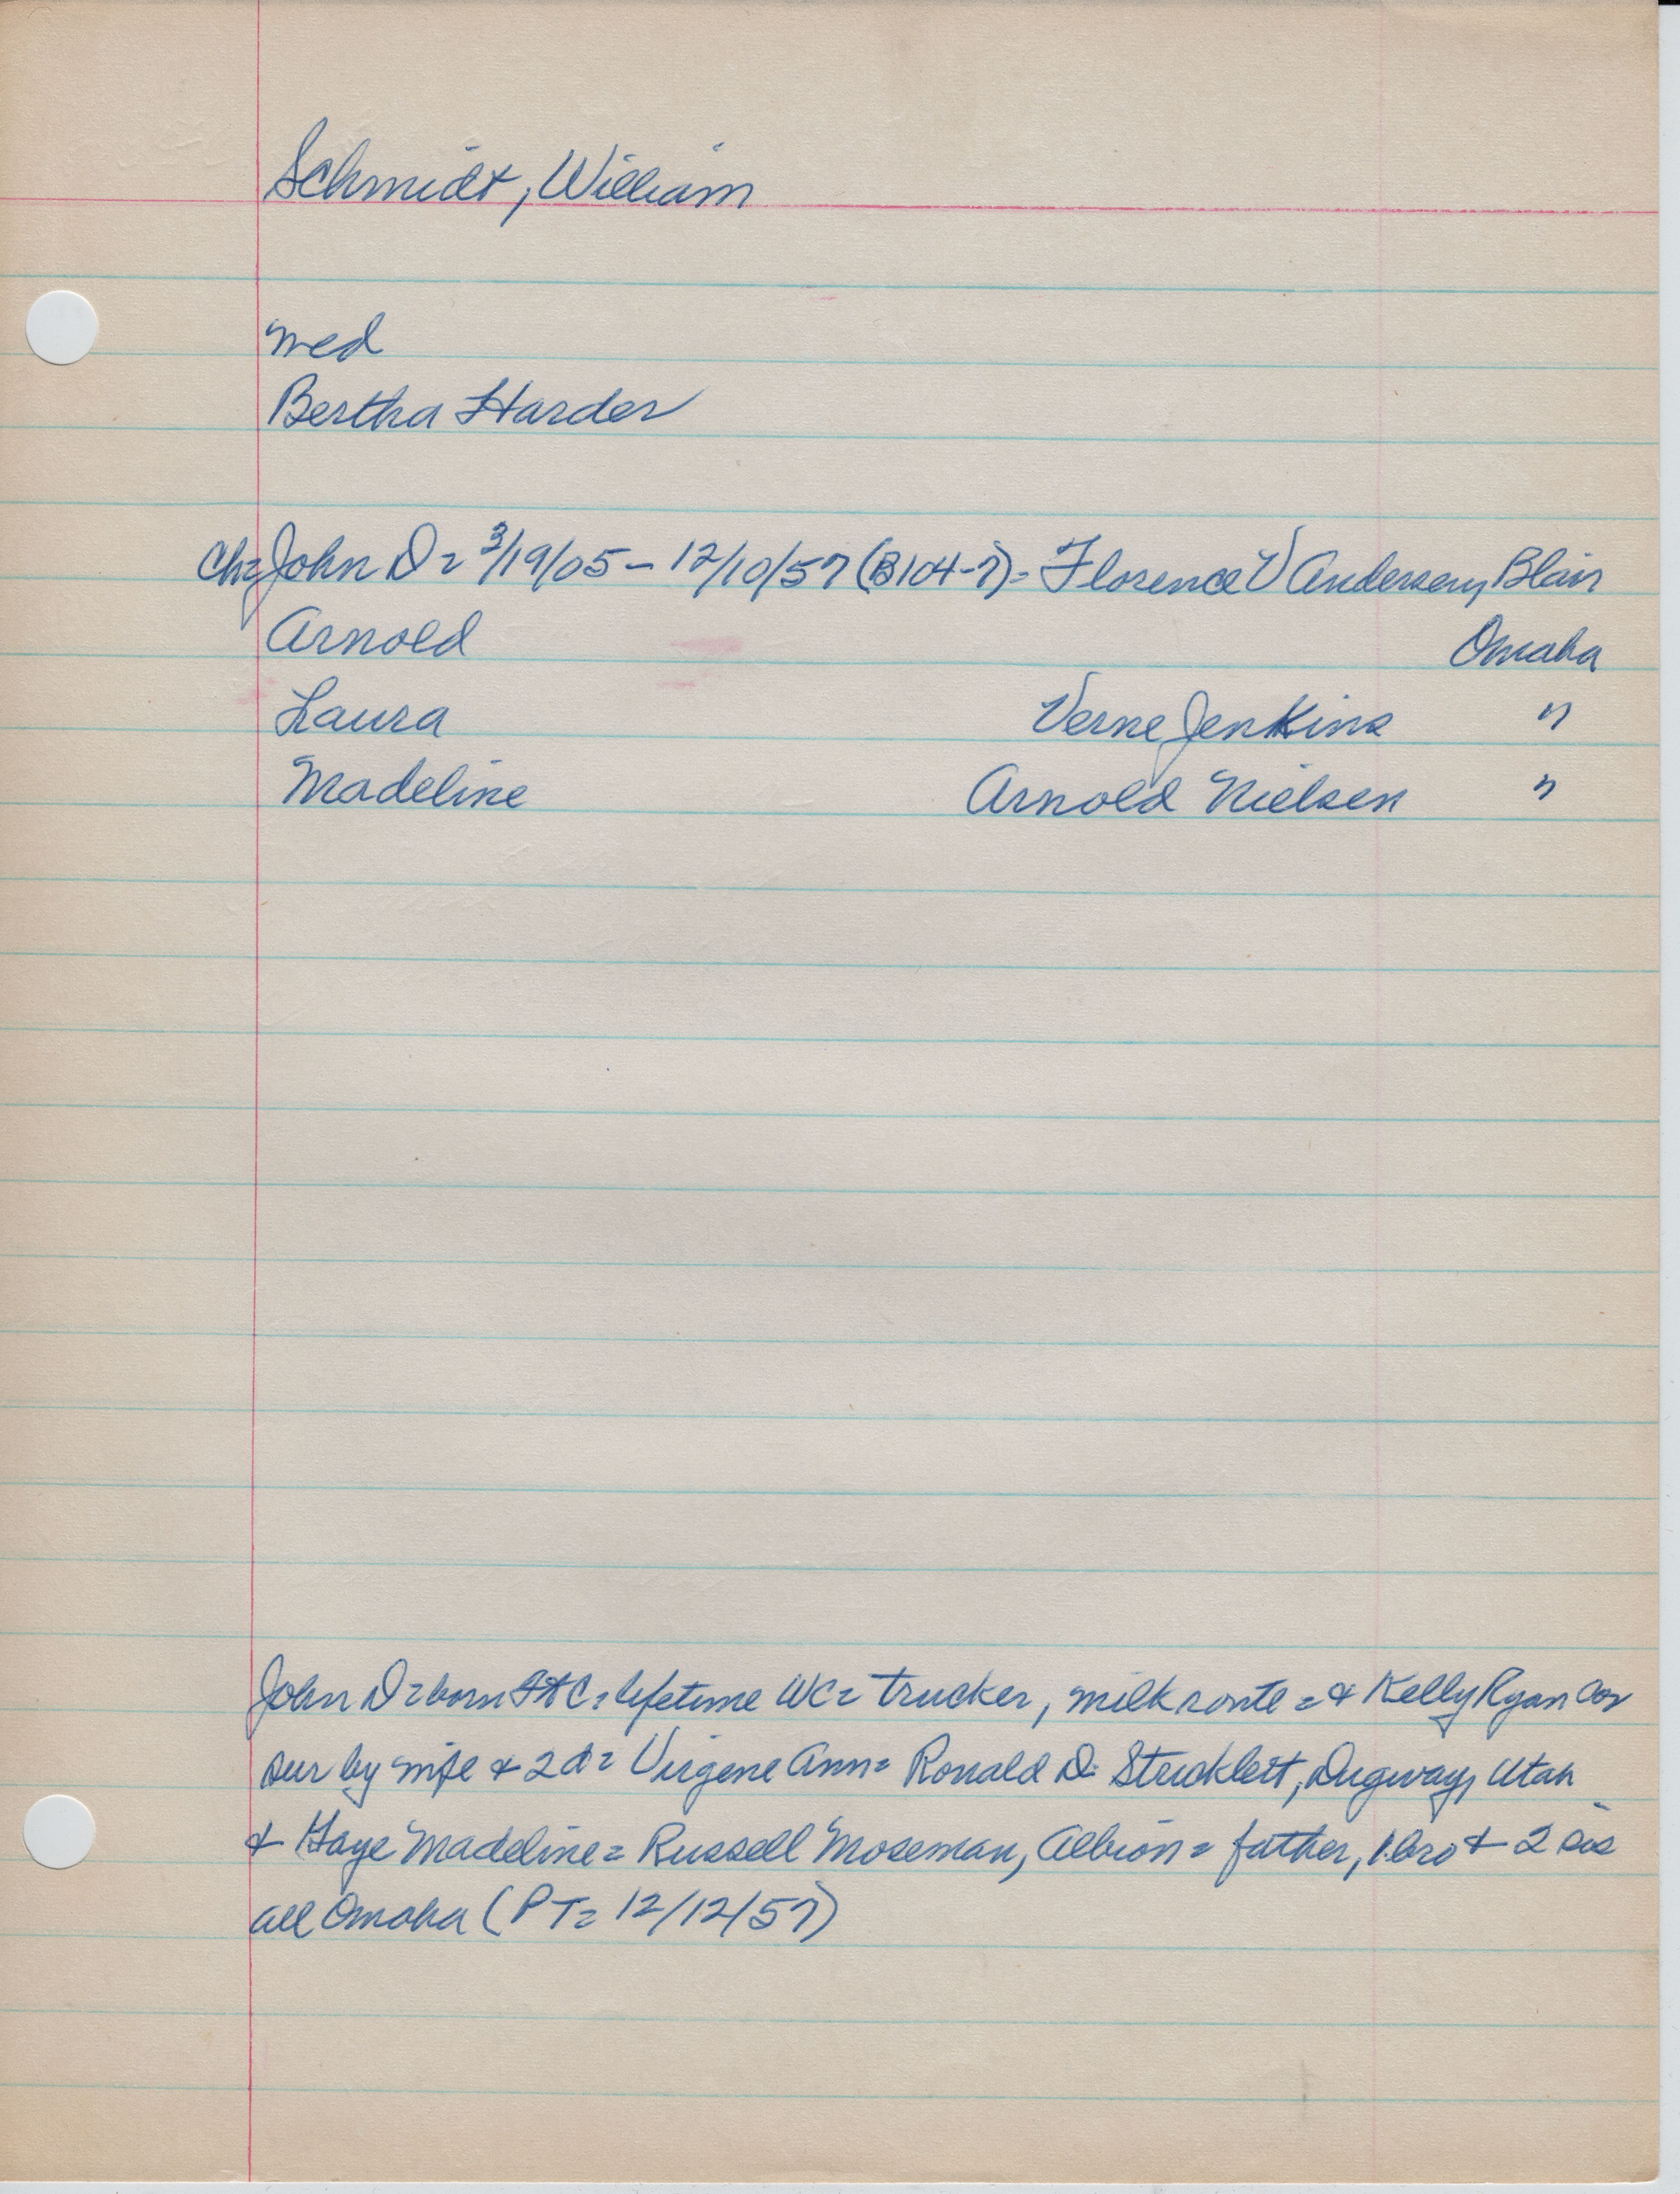 Schmidt, William
med
Bertha Harder
Ch= John D = 3/19/05 - 12/10/57 (B104-7) = Florence V Andersen, Blair
Arnold Omaha
Laura Verne Jenkins "
Madeline Arnold Nielsen "
John D = born Ft C = lifetime WC = trucker, milk route = & Kelly Ryan Co,
sur by wife & 2 d = Virgene Ann = Ronald D. Strucklett, Dugway, Utah
& Haye Madeline = Russell Moseman, Albion = father, 1 bro & 2 sis
all Omaha (PT = 12/12/57)